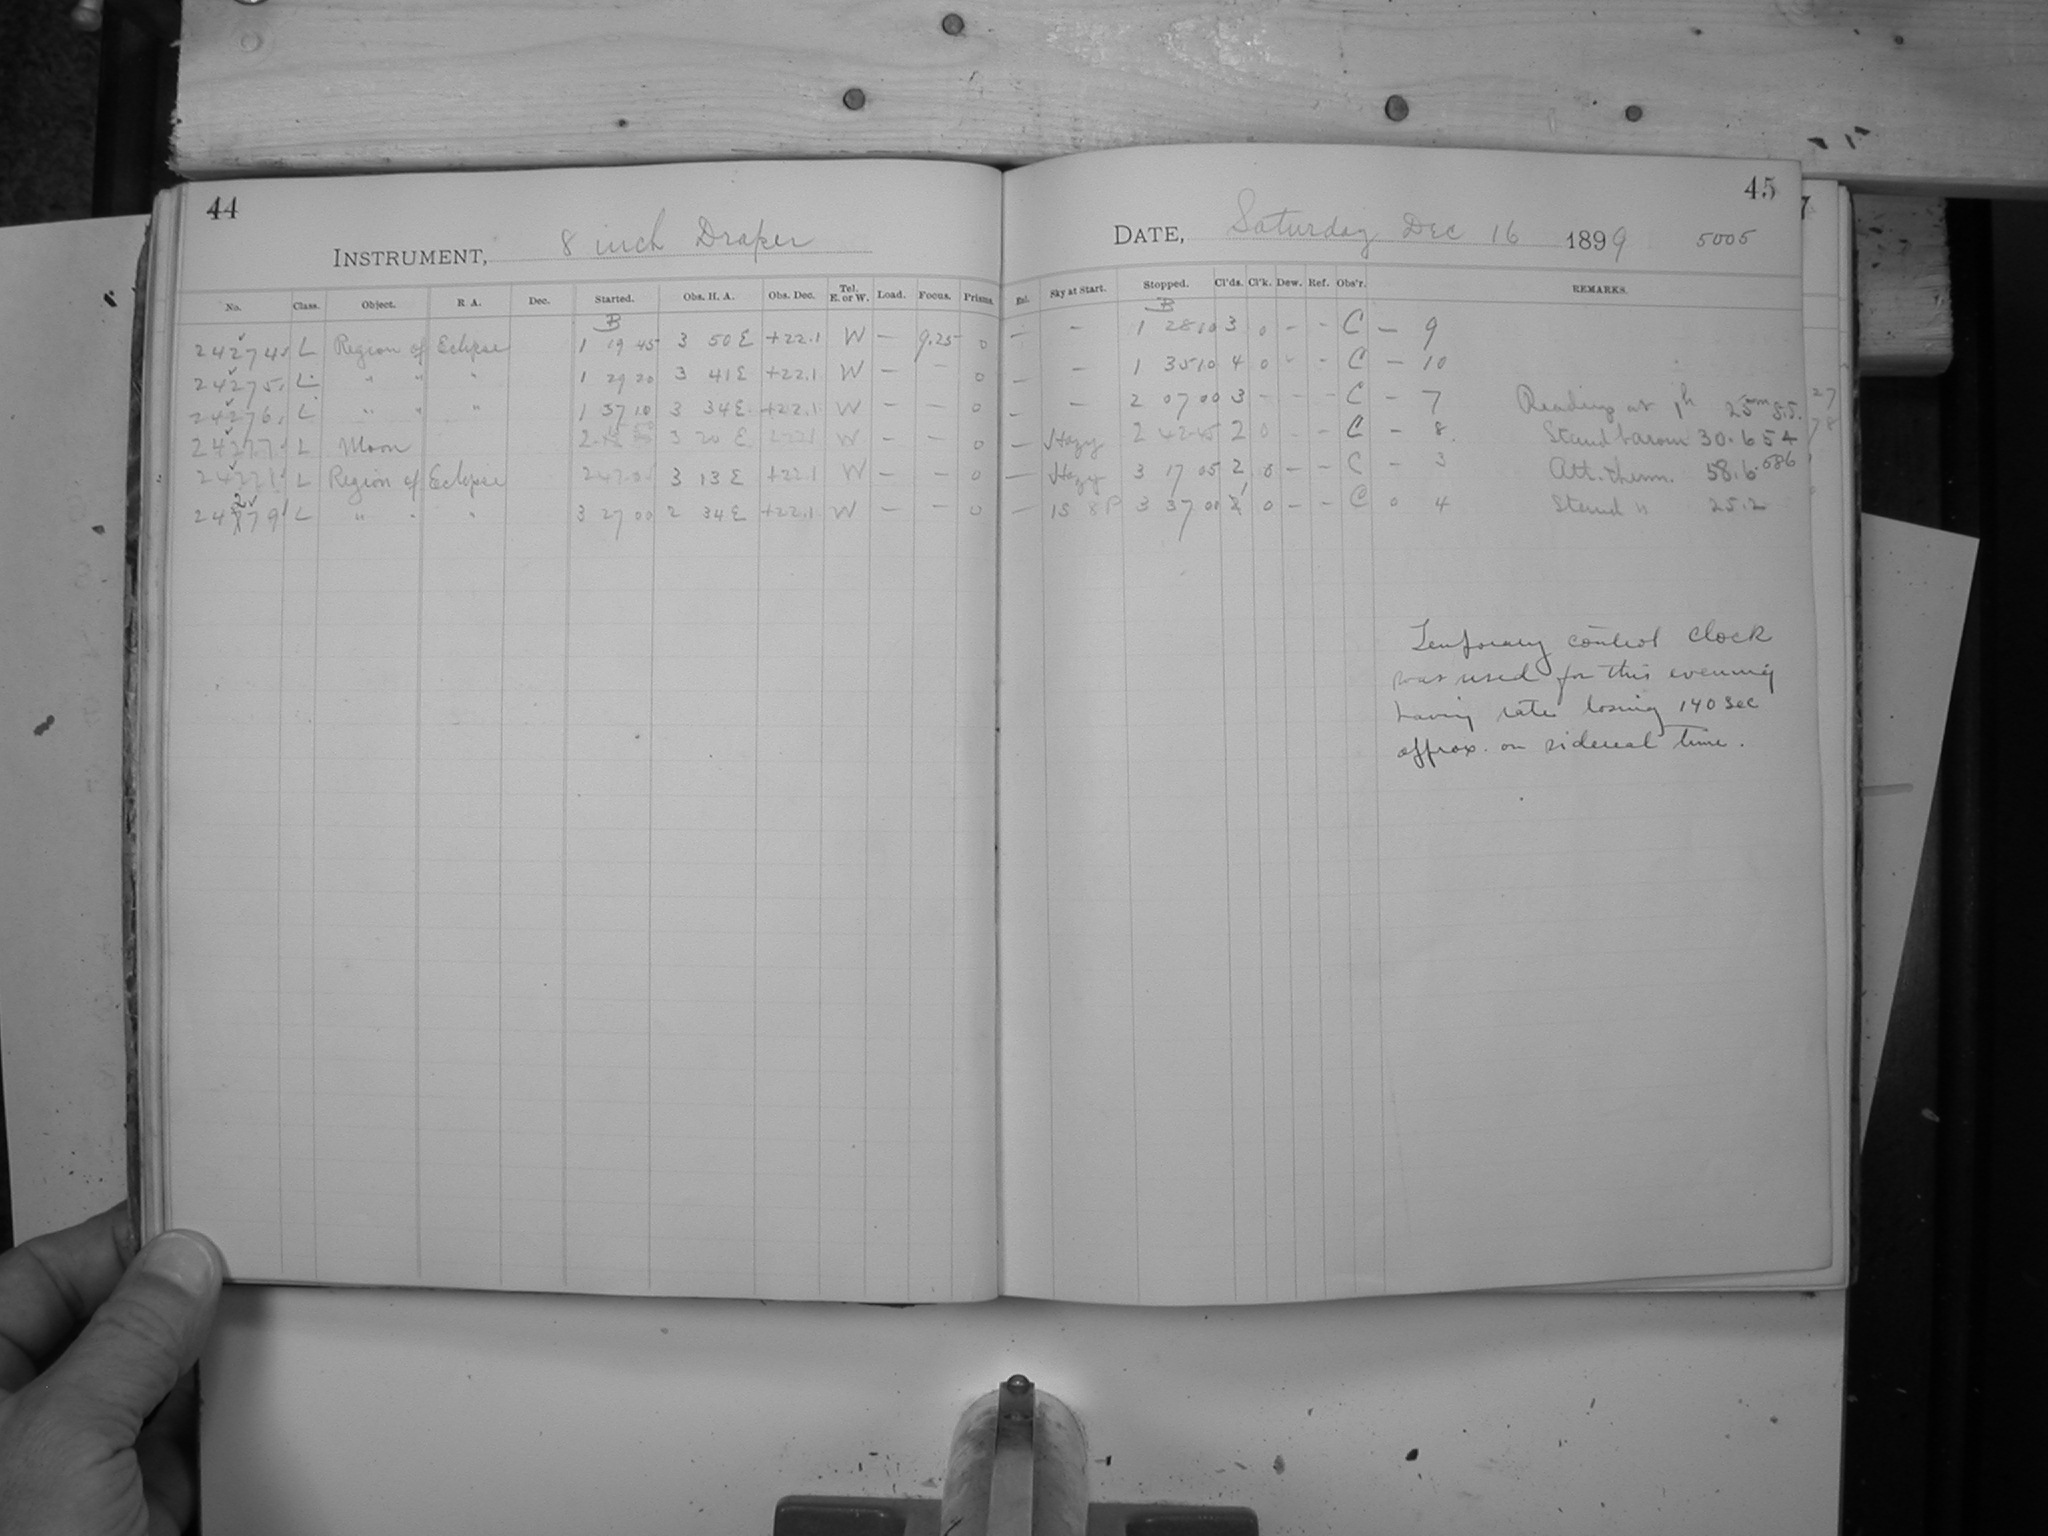 44
INSTRUMENT, 8 inch Draper
No. Class. Object. R A. Dec. Started. Obs. H. A. Obs. Dec. Tel. E. or W. Load. Focus. Prisms.
B
24274 L Region of Eclipse 1 19 45 3 50 E +22.1 W — 9.25 0
24275 L " " " 1 29 20 3 41 E +22.1 W — — 0
24276 L " " " 1 37 10 3 34 E +22.1 W — — 0
24277 L Moon 3 20 E W — — 0
L Region of Eclipse 3 13 E +22.1 W — — 0
24279 L " " " 3 27 00 2 34 E +22.1 W — — 0
45
DATE, Saturday Dec 16 1899 5005
Sky at Start. Stopped. Cl'ds. Cl'k. Dew. Ref. Obs'r. REMARKS.
B
— — 1 28 10 3 0 - - C — 9
— — 1 35 10 4 0 - - C — 10
— — 2 07 00 3 - - - C — 7 Reading at 1h 25m S.S.
— Hazy 2 42 45 2 0 - - C — 8. Stand barom 30.654
— Hazy 3 17 05 2 0 - - C — 3 Att. therm. 58.6
— IS 8P 3 37 00 1 0 - - C 0 4 Stand " 25.2
Temporary control clock
was used for this evening
having rate losing 140 sec
approx. on sidereal time.